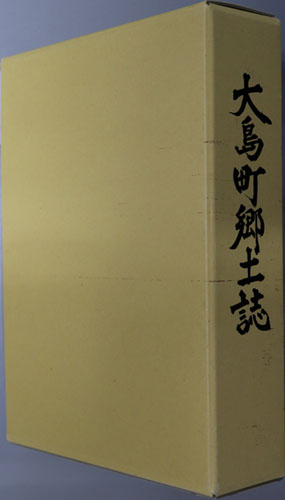 大島町郷土誌